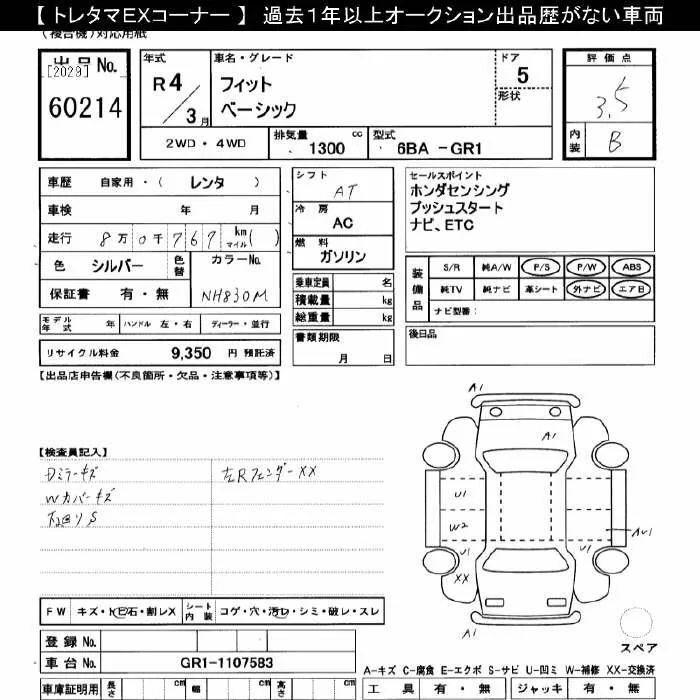 【 トレタマEXコーナー 】 過去1年以上オークション出品歴がない車両
(複合機)対応用紙
出品 No.
[2029]
60214
年式
R 4 / 3 月
車名・グレード
フィット
ベーシック
ドア
5
形状
2WD・4WD
排気量 cc
1300
型式
6BA -GR1
評価点
3.5
内装
B
車歴 自家用・( レンタ )
車検 年 月
走行 8万0千767 km マイル( )
色 シルバー 色替 カラーNo.
保証書 有・無 NH830M
モデル年式 年 ハンドル 左・右 ディーラー・並行
リサイクル料金 9,350 円 預託済
シフト
AT
冷房
AC
燃料
ガソリン
乗車定員 名
積載量 kg
総重量 kg
書類期限
月 日
セールスポイント
ホンダセンシング
プッシュスタート
ナビ、ETC
装備品
S/R 純A/W P/S P/W ABS
純TV 純ナビ 革シート 外ナビ エアB
ナビ型番:
後日品
【出品店申告欄(不良箇所・欠品・注意事項等)】
【検査員記入】
Dミラーキズ
Wカバーキズ
左Rフェンダー XX
A1
A1
U1
W2
U1
U1
AU1
XX
A1
スペア
FW キズ・ヒビ石・割レX シート内装 コゲ・穴・汚レ・シミ・破レ・スレ
登録 No.
車台 No. GR1-1107583
車庫証明用 長さ cm 幅 cm 高さ cm
A-キズ C-腐食 E-エクボ S-サビ U-凹ミ W-補修 XX-交換済
工具 有・無 ジャッキ 有・無